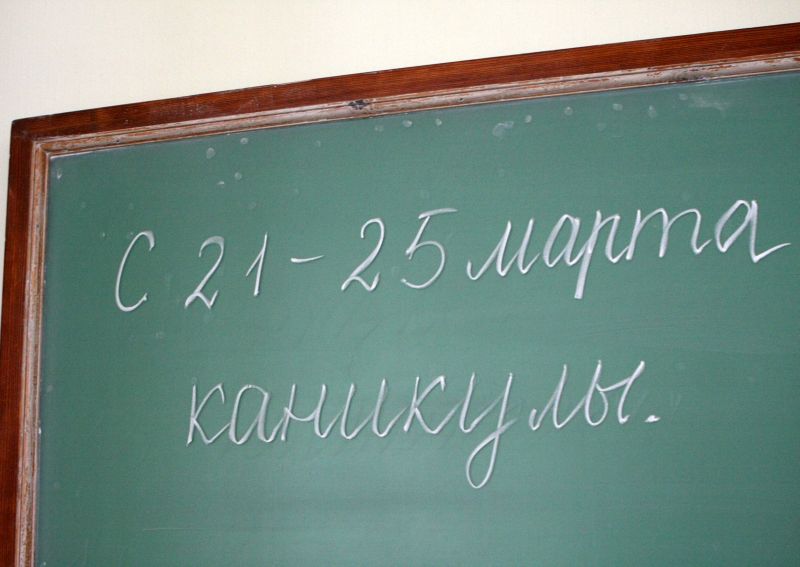 С 21 - 25 марта
каникулы.